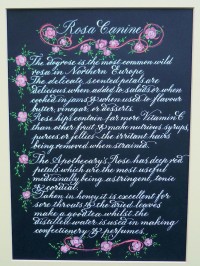 Rosa Canine
The dogrose is the most common wild
rosa in Northern Europe.
The delicate scented petals are
delicious when added to salads or when
cooked in jams & when used to flavour
butter, vinegar, or desserts.
Rose hips contain far more Vitamin C
than other fruit & make nutritious syrups,
purees or jellies - the irritant hairs
being removed when strained.
The Apothecary's Rose has deep red
petals which are the most useful
medicinally being astringent, tonic
& cordial.
Taken in honey it is excellent for
sore throats & the dried leaves
make a good tea whilst the
distilled water is used in making
confectionery & perfumes.